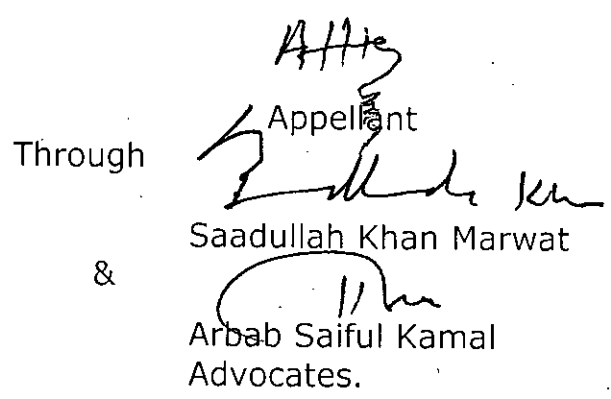 Appellant
Through
Saadullah Khan Marwat
&
Arbab Saiful Kamal
Advocates.